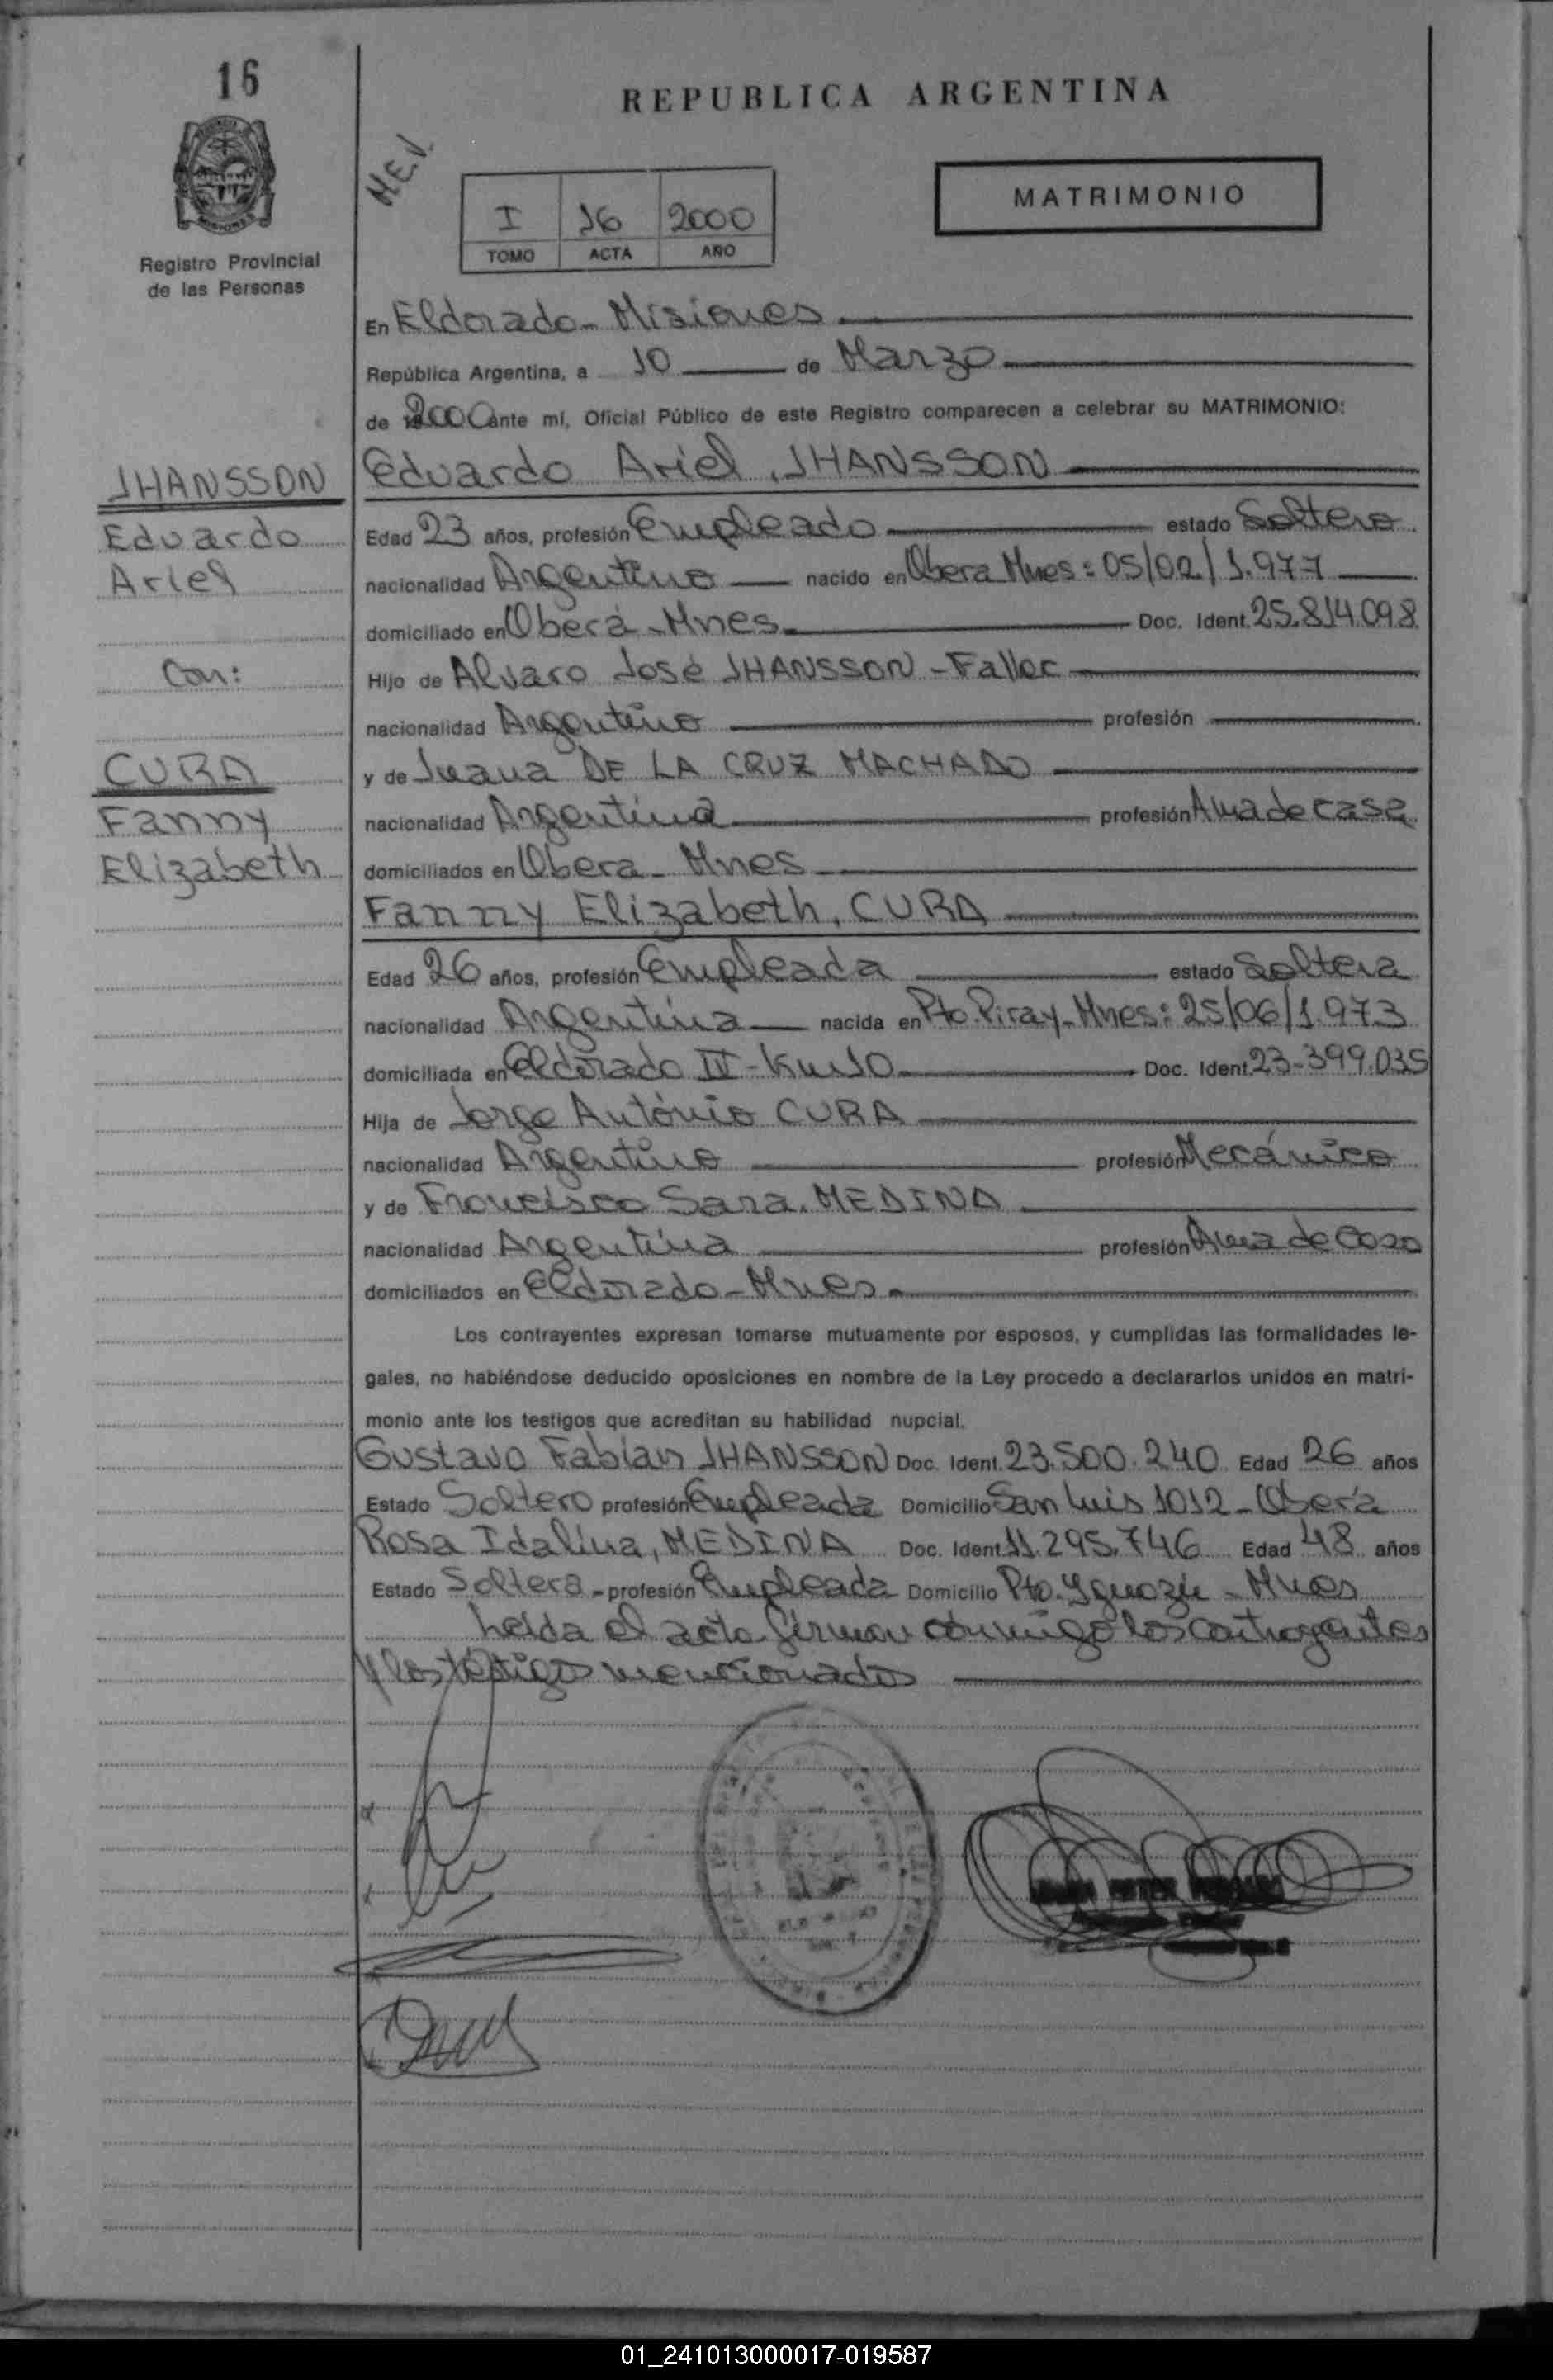 16
REPUBLICA ARGENTINA
MEN
MATRIMONIO
I 16 2000
TOMO ACTA AÑO
Registro Provincial
de las Personas
En Eldorado - Misiones
República Argentina, a 10 de Marzo
de 2000 ante mí, Oficial Público de este Registro comparecen a celebrar su MATRIMONIO:
JHANSSON
Eduardo
Ariel
Con:
CURA
Fanny
Elizabeth
Eduardo Ariel, JHANSSON
Edad 23 años, profesión Empleado estado Soltero
nacionalidad Argentino nacido en Obera Mnes: 05/02/1.977
domiciliado en Oberá - Mnes Doc. Ident. 25.814.098
Hijo de Alvaro José JHANSSON - Fallec
nacionalidad Argentino profesión
y de Juana DE LA CRUZ MACHADO
nacionalidad Argentina profesión Ama de casa
domiciliados en Obera - Mnes
Fanny Elizabeth, CURA
Edad 26 años, profesión Empleada estado Soltera
nacionalidad Argentina nacida en Pto. Piray - Mnes: 25/06/1.973
domiciliada en Eldorado IV - Km 10 Doc. Ident. 23-399.035
Hija de Jorge António CURA
nacionalidad Argentino profesión Mecánico
y de Francisca Sara, MEDINA
nacionalidad Argentina profesión Ama de Casa
domiciliados en Eldorado - Mnes
Los contrayentes expresan tomarse mutuamente por esposos, y cumplidas las formalidades le-
gales, no habiéndose deducido oposiciones en nombre de la Ley procedo a declararlos unidos en matri-
monio ante los testigos que acreditan su habilidad nupcial.
Gustavo Fabian JHANSSON Doc. Ident. 23.500.240 Edad 26 años
Estado Soltero profesión Empleada Domicilio San Luis 1012 - Oberá
Rosa Idalina, MEDINA Doc. Ident. 11.295.746 Edad 48 años
Estado Soltera - profesión Empleada Domicilio Pto. Yguazú - Mnes
Leída el acta firman conmigo los contrayentes
y los testigos mencionados
01_241013000017-019587